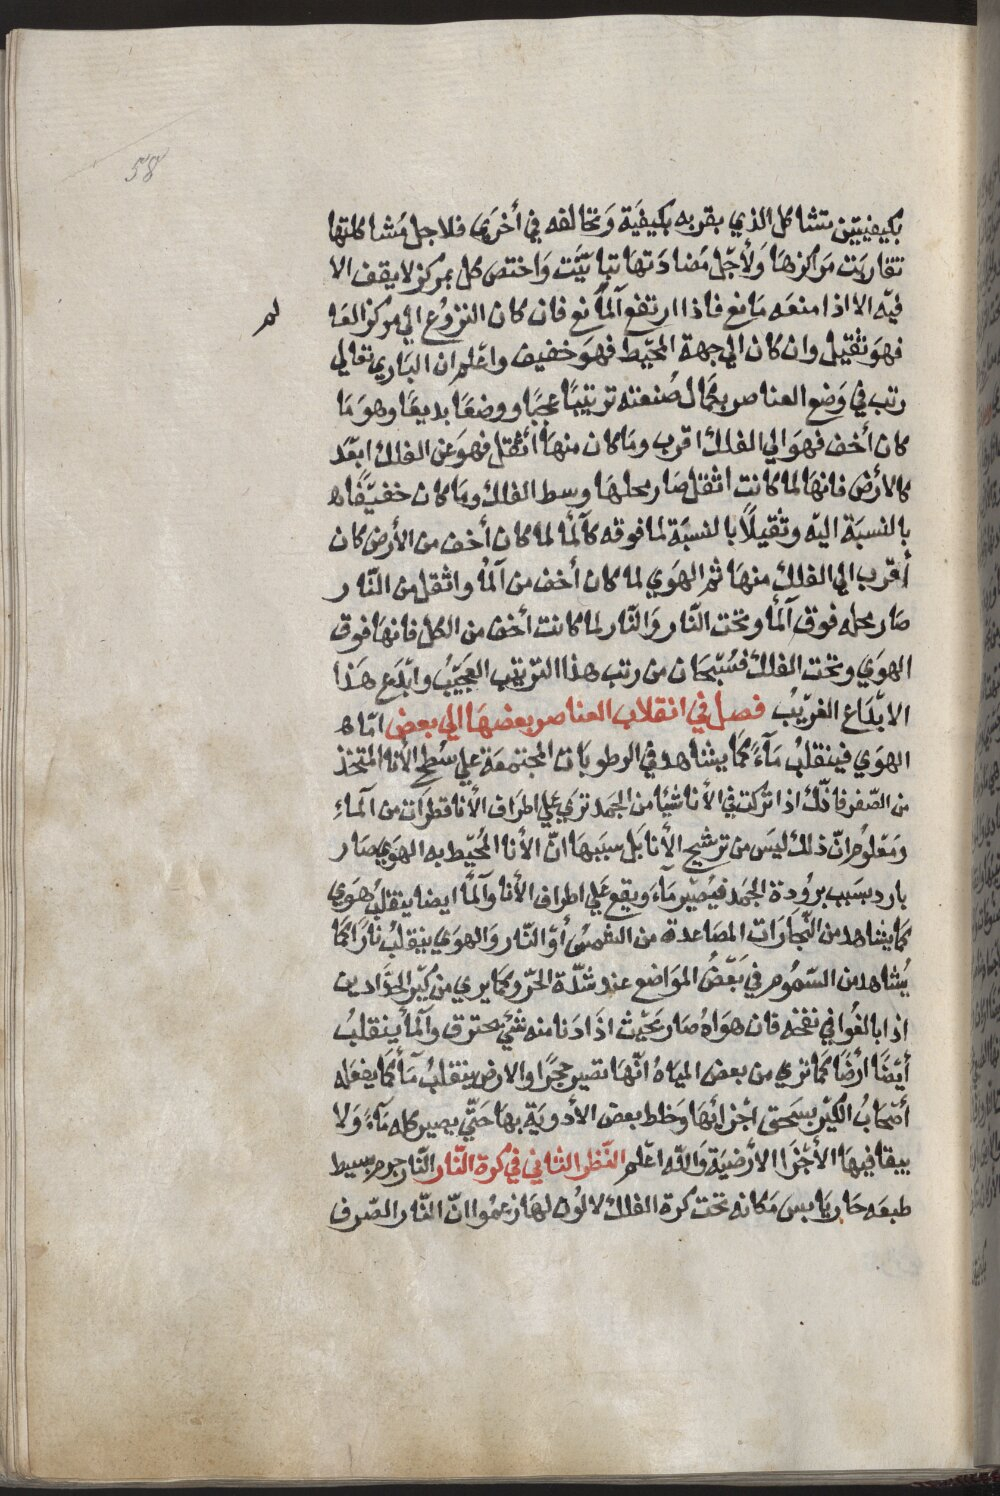 58
بكيفيتين تتشاكل الذي بقربه بكيفية وتخالفه في أخرى فلاجل مشاكلتها
تقاربت مراكزها ولأجل مضادتها تباينت واختص كل بمركز لا يقف الا
فيه الا اذا منعه مانع فاذا ارتفع المانع فان كان النزوع الي مركز العا
لم
فهو ثقيل وان كان الي جهة المحيط فهو خفيف واعلم ان الباري تعالي
رتب في وضع العناصر بكمال صنعته ترتيبا عجبا ووضعا بديعا وهو ما
كان أخف فهو الي الفلك اقرب وما كان منها أثقل فهو عن الفلك ابعد
كالأرض فانها لما كانت اثقل صار محلها وسط الفلك وما كان خفيفا
بالنسبة اليه وثقيلا بالنسبة لما فوقه كالما لما كان أخف من الأرض كان
أقرب الي الفلك منها ثم الهوي لما كان أخف من الما واثقل من النار
صار محله فوق الما وتحت النار والنار لما كانت أخف من الكل فانها فوق
الهوي وتحت الفلك فسبحان من رتب هذا الترتيب العجيب وابدع هذا
الابداع الغريب فصل في انقلاب العناصر بعضها الي بعض اما
الهوي فينقلب ماء كما يشاهد في الرطوبات المجتمعة علي سطح الأنا المتخذ
من الصفر فانك اذا تركت في الأنا شيئا من الجمد تري علي اطراف الأنا قطرات من الماء
ومعلوم ان ذلك ليس من ترشيح الأنا بل سببها ان الأنا المحيط به الهوي صار
بارد بسبب برودة الجمد فيصير ماء ويقع علي اطراف الأنا والما ايضا ينقلب هوي
كما يشاهد من البخارات المصاعدة من الشمس أو النار والهوي ينقلب نارا كما
يشاهد من السموم في بعض المواضع عند شدة الحر وكما يري من كير الحدادين
اذا بالغوا في نفخه فان هواه صار بحيث اذا دنا منه شيء يحترق والما ينقلب
أيضا ارضا كما تري من بعض المياه انها تصير حجرا والارض ينقلب ما كما يفعله
أصحاب الكير بسحق اجزائها وخلط بعض الأدوية بها حتي يصير كله ماء ولا
يبقا فيها الأجزا الارضية والله اعلم النظر الثاني في كرة النار النار جرم بسيط
طبعه حار يابس مكانه تحت كرة الفلك لا لون لها زعموا ان النار الصرف